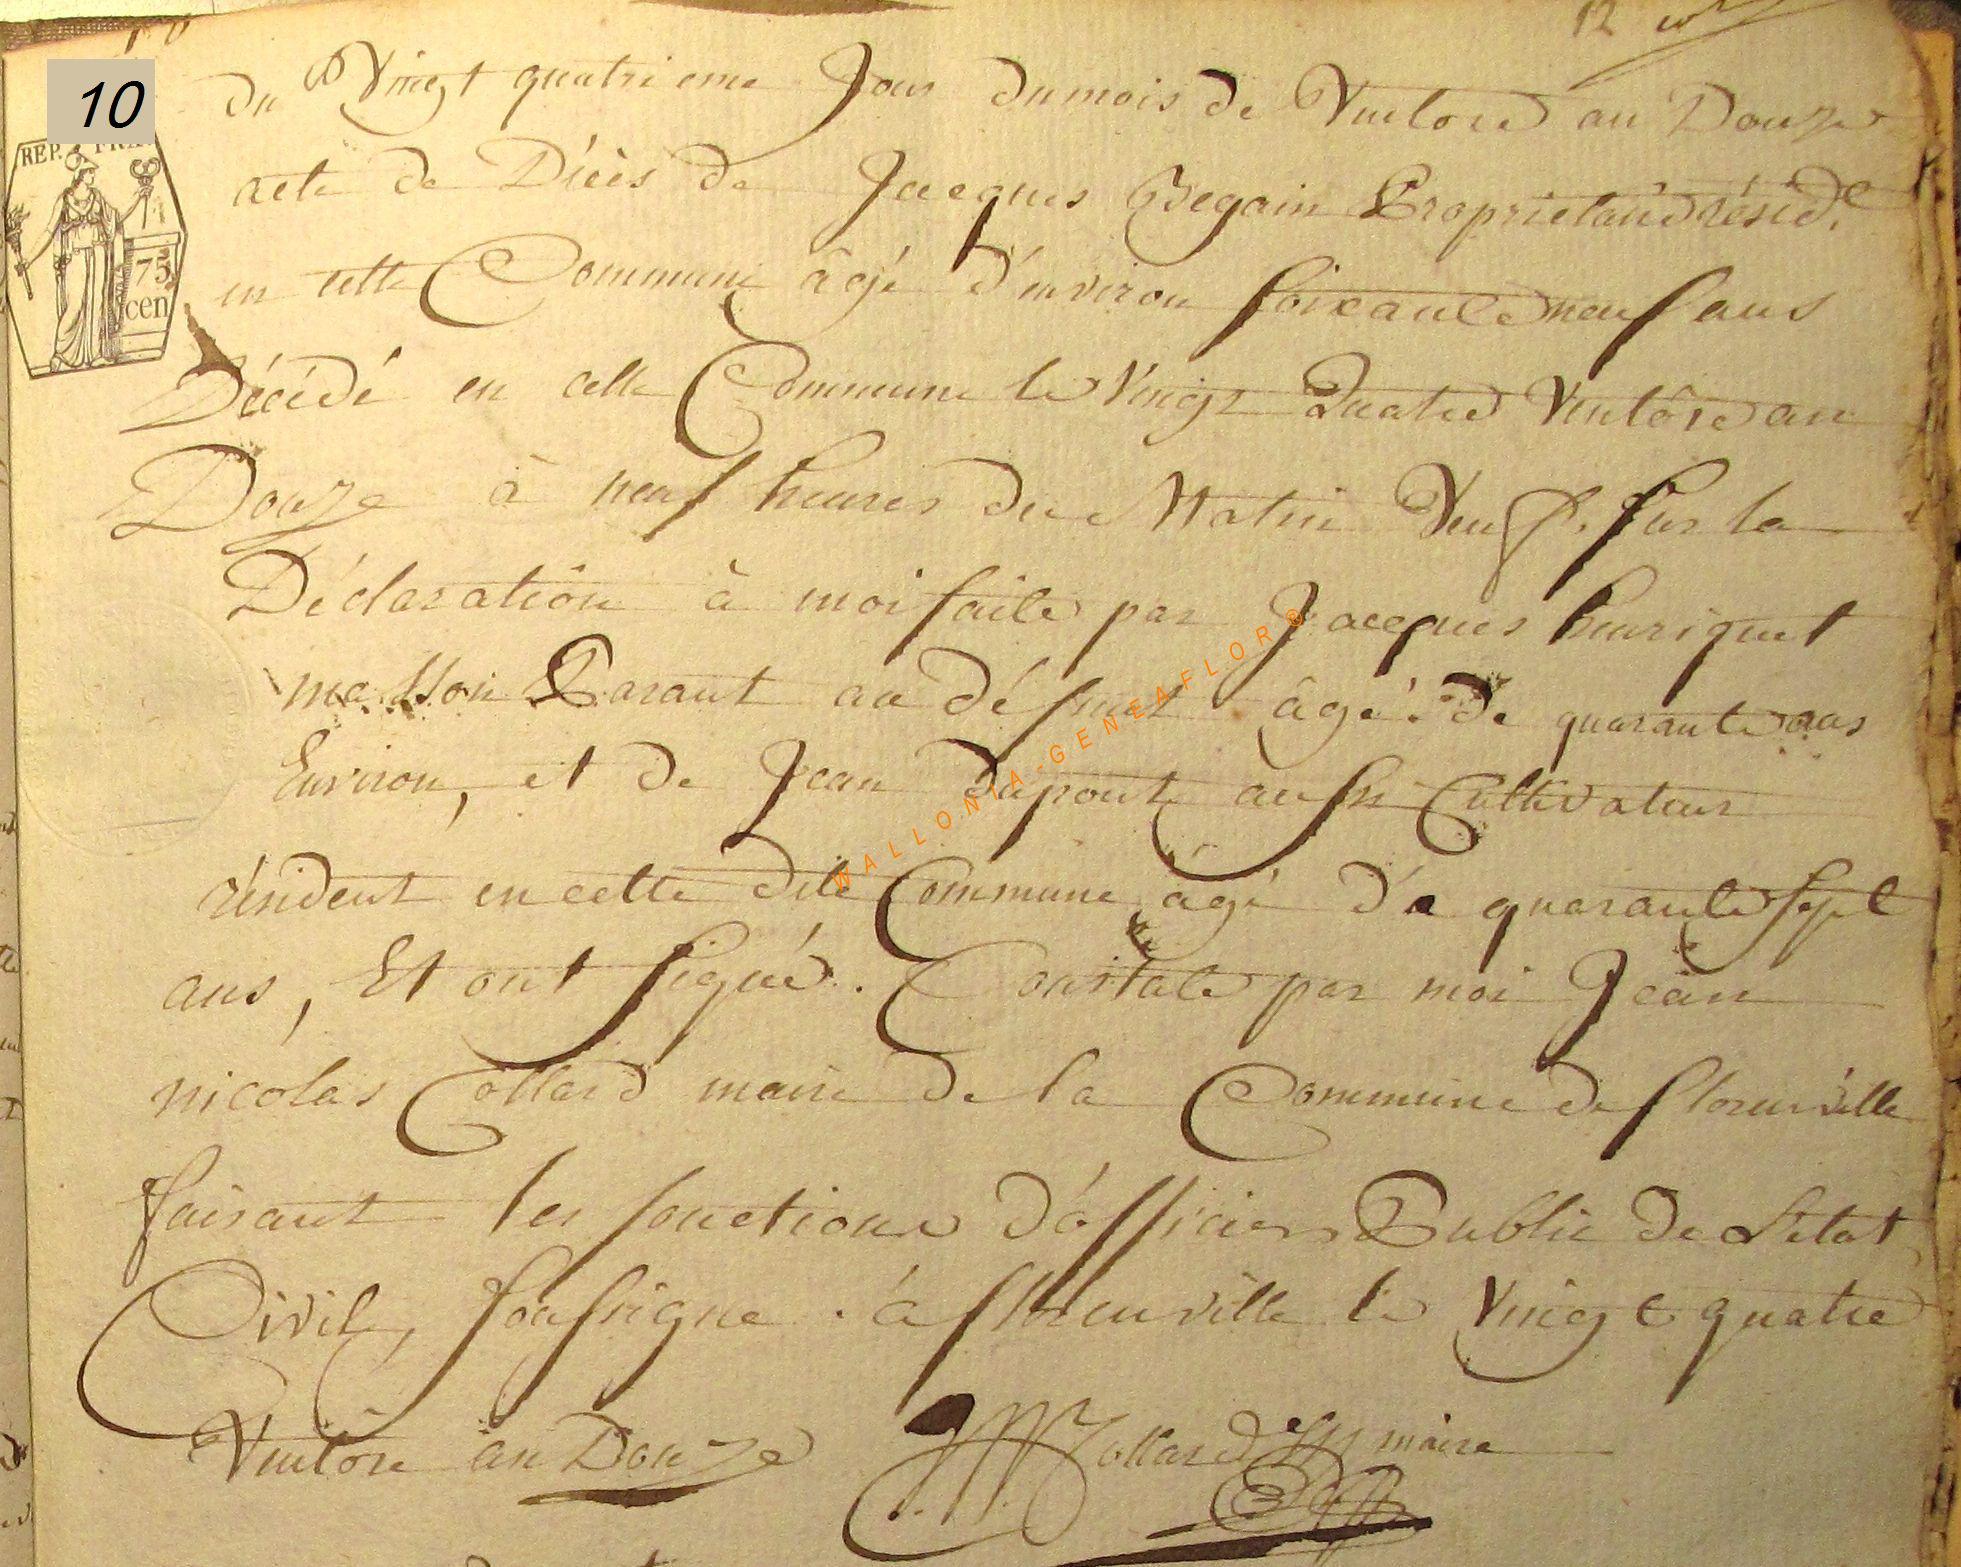 12
10
REP. FRA.
75
cen
du Vingt quatrieme Jour du mois de Ventose an Douze
acte de Décès de Jacques Begain Proprietaire résid.e
en cette Commune âgé d'environ soixante neuf ans
Décédé en cette Commune le Vingt Quatre Ventôse an
Douze à neuf heures du Matin Veuf. sur la
Déclaration à moi faite par Jacques henriquet
masson Parant au défunt âgé de quarante ans
Environ, et de Jean dupont aussi Cultivateur
résident en cette dite Commune âgé de quarante sept
ans, Et ont signé. Constaté par moi Jean
nicolas Collard maire de la Commune de florenville
faisant les fonctions d'officier Public de L'etat
Civil, soussigné. à florenville le Vingt quatre
Ventôse an Douze Collard maire
WALLONIA-GENEAFLOR®